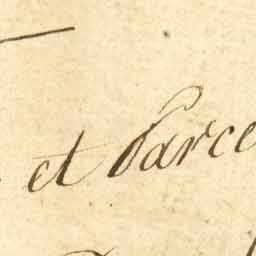 et Parce